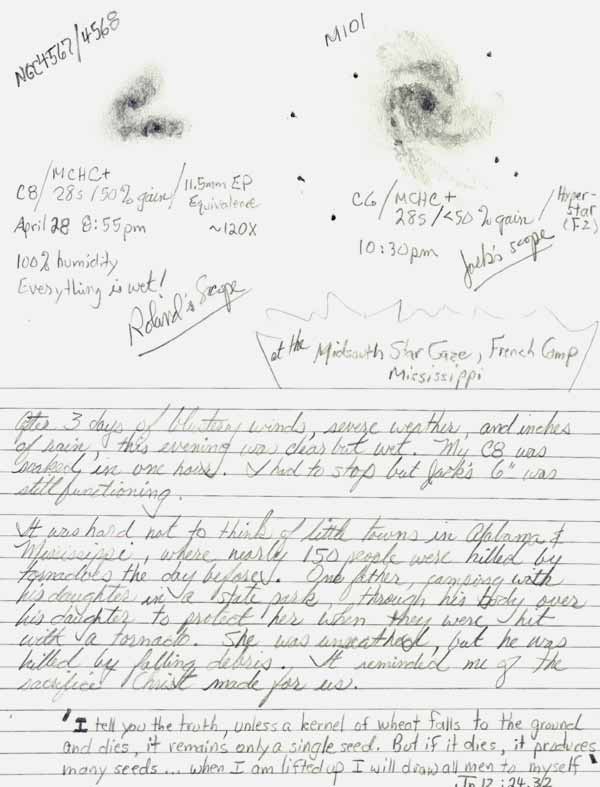 NGC4567/4568
M101
C8/MCHC+
28s/50% gain/11.5mm EP
Equivalence
April 28 8:55pm
~120X
100% humidity
Everything is wet!
Roland's Scope
C6/MCHC+
28s/<50% gain/Hyper-
Star
(F2)
10:30pm
Jack's scope
at the Midsouth Star Gaze, French Camp
Mississippi
After 3 days of blustery winds, severe weather, and inches
of rain, this evening was clear but wet. My C8 was
soaked, in one hour. I had to stop but Jack's 6" was
still functioning.
It was hard not to think of little towns in Alabama &
Mississippi, where nearly 150 people were killed by
tornadoes the day before. One father, camping with
his daughter in a state park, through his body over
his daughter to protect her when they were hit
with a tornado. She was unscathed, but he was
killed by falling debris. It reminded me of the
sacrifice Christ made for us.
"I tell you the truth, unless a kernel of wheat falls to the ground
and dies, it remains only a single seed. But if it dies, it produces
many seeds... when I am lifted up I will draw all men to myself"
Jn 12:24,32